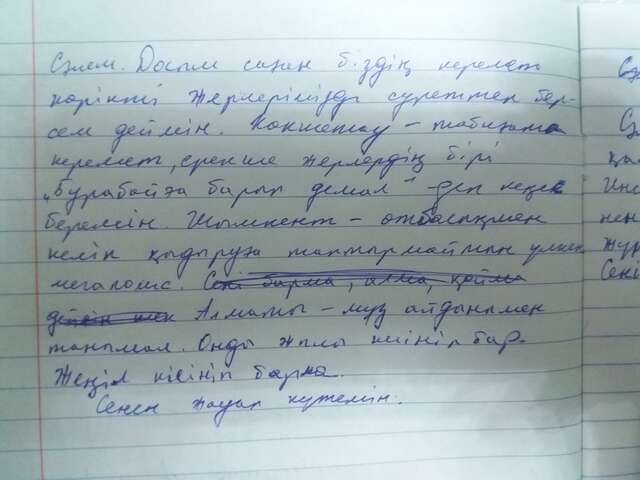 Сәлем. Досым саған біздің керемет
көрікті жерлерімізді суреттеп бер-
сем деймін. Көкшетау – табиғаты
керемет, ерекше жерлердің бірі
„Бурабайға барып демал" – деп кеңес
беремін. Шымкент – отбасыңмен
келіп қыдыруға таптырмайтын үлкен
мегаполис. Сені барма, алма, қойма
Алматы – мұз айдынымен
танымал. Онда жылы киініп бар.
Жеңіл киініп барма.
Сенен жауап күтемін.
Сә
Сә
қа
Инс
нен
жүр
Сені